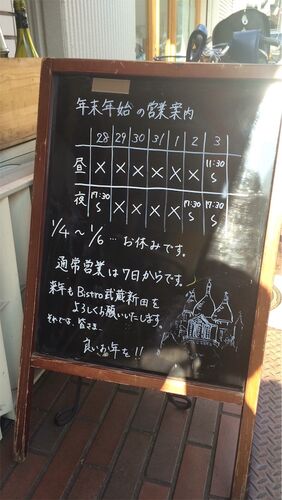 年末年始の営業案内
28 29 30 31 1 2 3
昼 X X X X X X 11:30 S
夜 17:30 S X X X X 17:30 S 17:30 S
1/4〜1/6…お休みです。
通常営業は7日からです。
来年もBistro武蔵新田を
よろしくお願いいたします。
それでは、皆さま
良いお年を!!